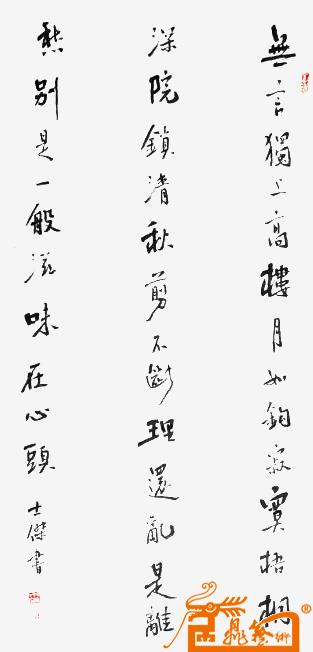 無言獨上高樓月如鉤寂寞梧桐
深院鎖清秋剪不斷理還亂是離
愁別是一般滋味在心頭
士傑書